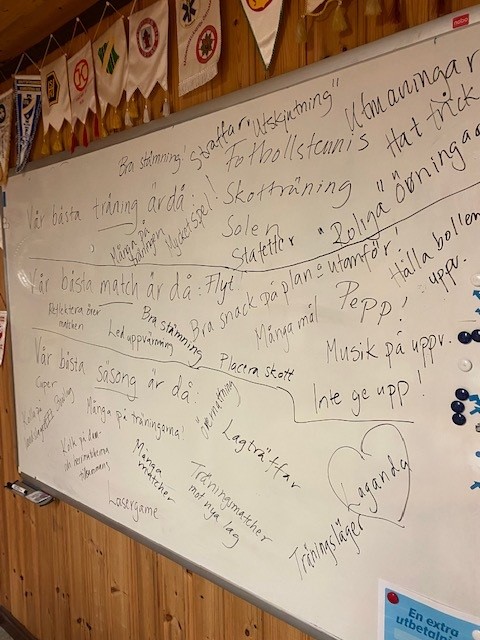 Bra stämning!
Straffar "Utskjutning"
Utmaningar
Fotbollstennis
Hat trick
Vår bästa träning är då:
Många på träningen
Mycket spel!
Skotträning
Solen
Stafetter
"Roliga" övningar
Vår bästa match är då:
Flyt!
Bra snack på plan o utanför!
Hålla bollen
uppv.
Reflektera över
matchen
Led uppvärmning
Bra stämning
Många mål
Pepp!
Placera skott
Musik på uppv.
Inte ge upp!
Vår bästa säsong är då:
Cuper
Kolla på
Bowling
Många på träningarna!
övernattning
Lagträffar
Kolla på dam-
och herrmatcherna
tillsammans
Många
matcher
Träningsmatcher
mot nya lag
Lasergame
Laganda
Träningsläger
nobo
En extra
utbetalning